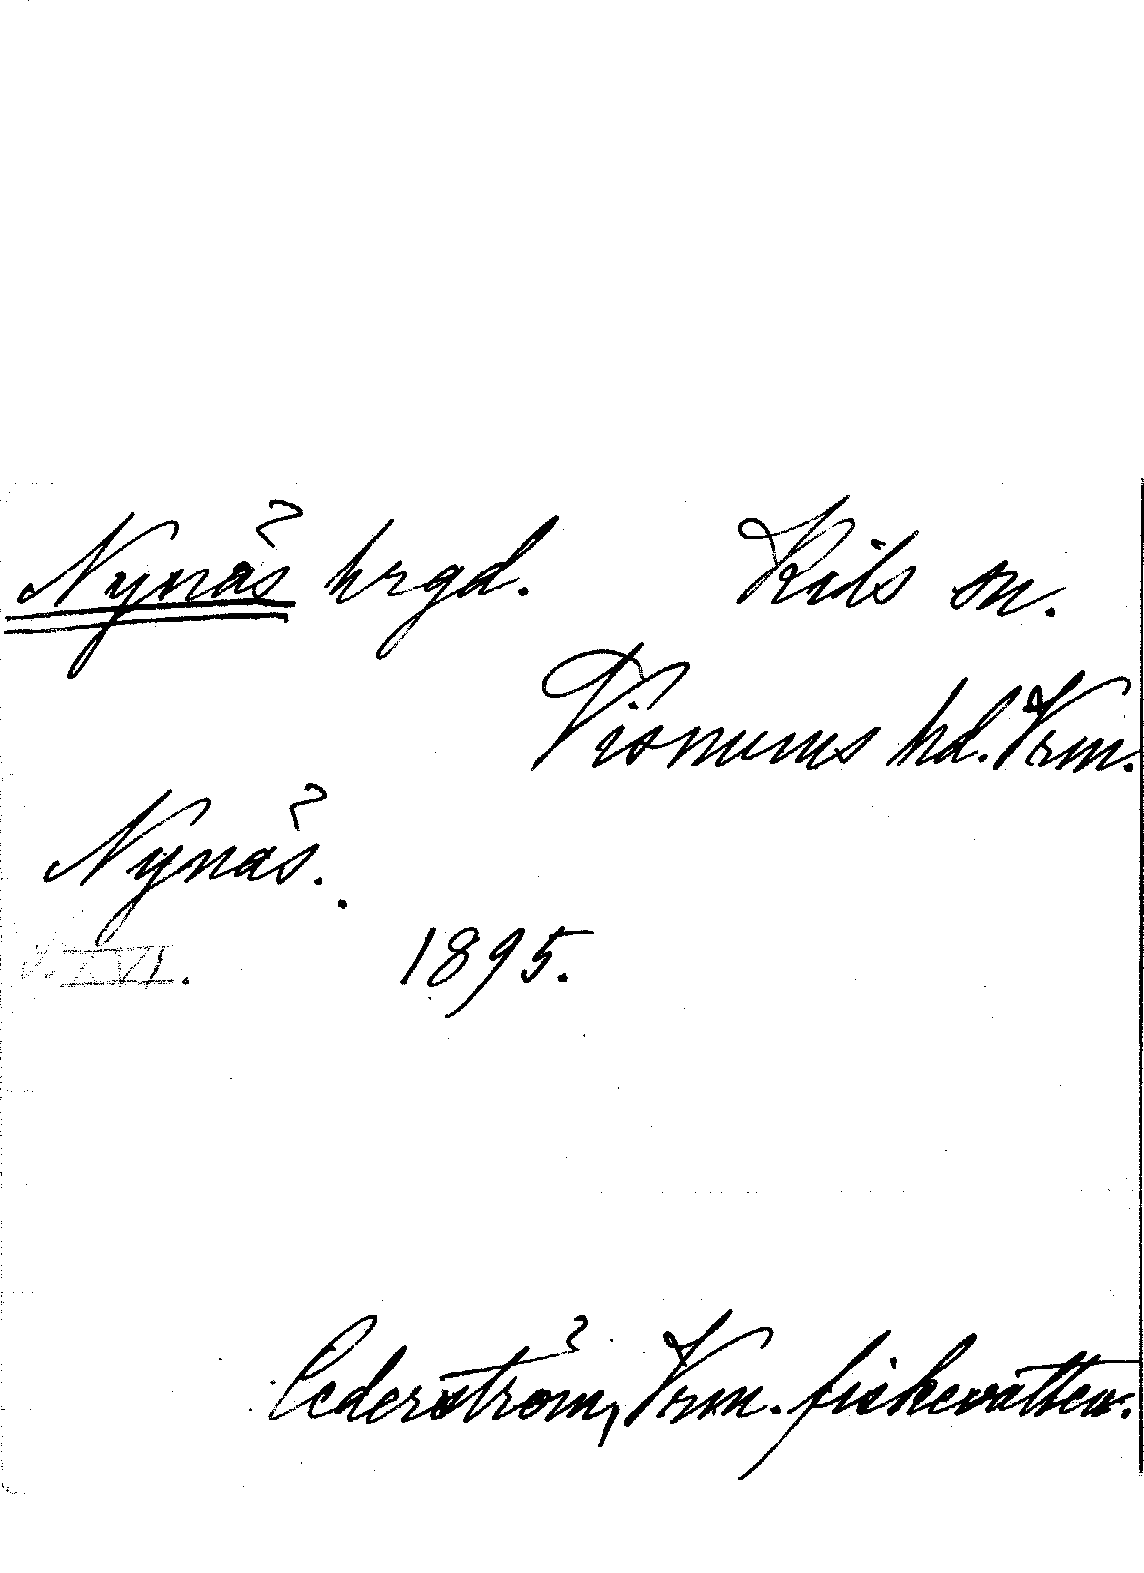 Nynäs hrgd. Kils sn.
Visnums hd. Vrm.
Nynäs.
1895.
Cederström, Vrm. fiskevatten.